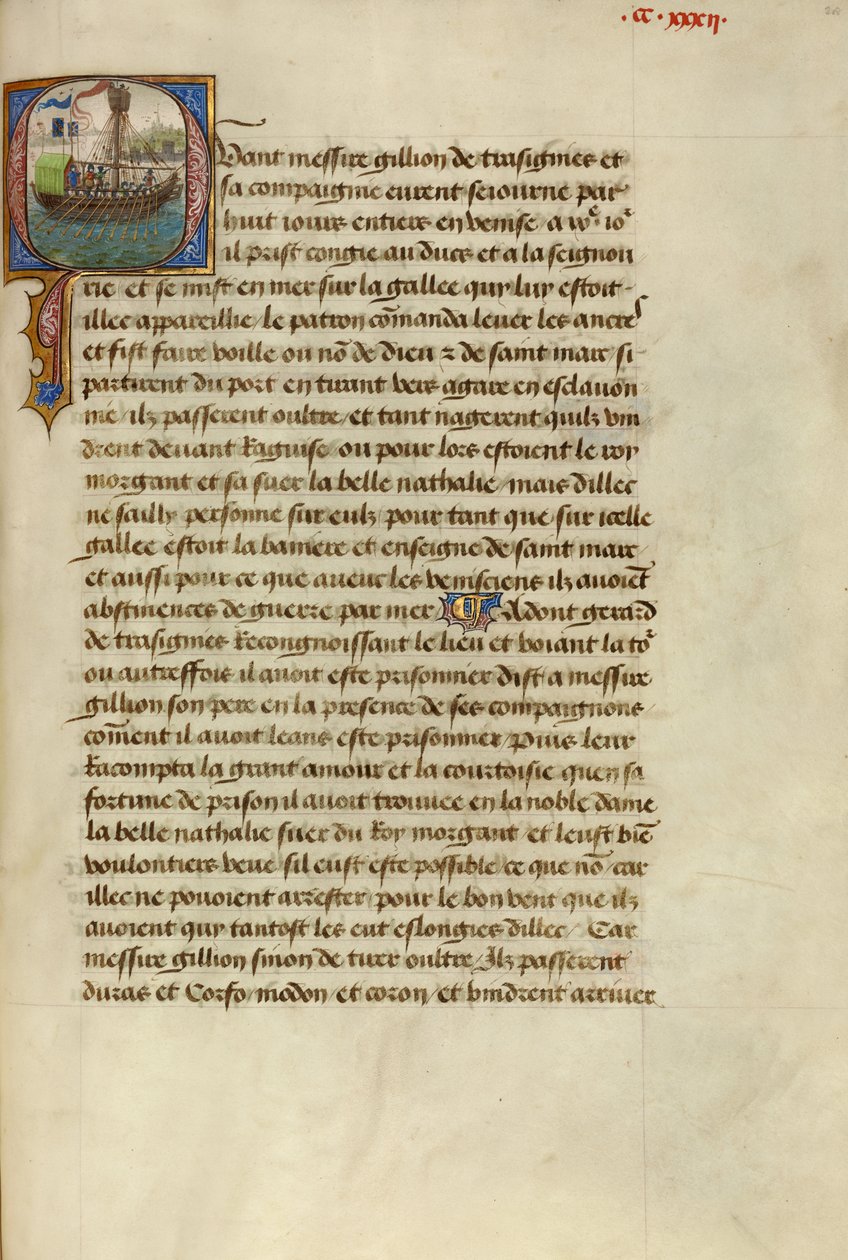 .CC.xxxii.
Quant messire gillion de trasignies et
sa compaignie eurent seiourne par
huit iours entiers en venise / a xve ior
il prist congie au duc et a la seignou
rie et se mist en mer sur la gallee quy luy estoit
illec appareillie / le patron cōmanda lever les ancres
et fist faire voille ou nō de dieu ⁊ de saint marc / si
partirent du port en tirant vers agare en esclavon
nie / ilz passerent oultre / et tant nagerent quilz vin
drent devant Raguise / ou pour lors estoient le roy
morgant et sa suer la belle nathalie / mais dillec
ne sailly personne sur eulz / pour tant que sur icelle
gallee estoit la baniere et enseigne de saint marc
et aussi pour ce que avec les venisciens ilz avoiēt
abstinences de guerre par mer / Adont gerard
de trasignies Recongnoissant le lieu et voiant la tor
ou autreffois il avoit este prisonnier dist a messire
gillion son pere en la presence de ses compaignons
cōment il avoit leans este prisonnier / Puis leur
Racompta la grant amour et la courtoisie quen sa
fortune de prison il avoit trouvee en la noble dame
la belle nathalie suer du Roy morgant et leust biē
voulontiers veue sil eust este possible / ce que nō / car
illec ne povoient arrester / pour le bon vent que ilz
avoient quy tantost les eut eslongies dillec / Car
messire gillion sinon de tirer oultre / Ilz passerent
duras et Corfo / modon / et coron / et vindrent arriver